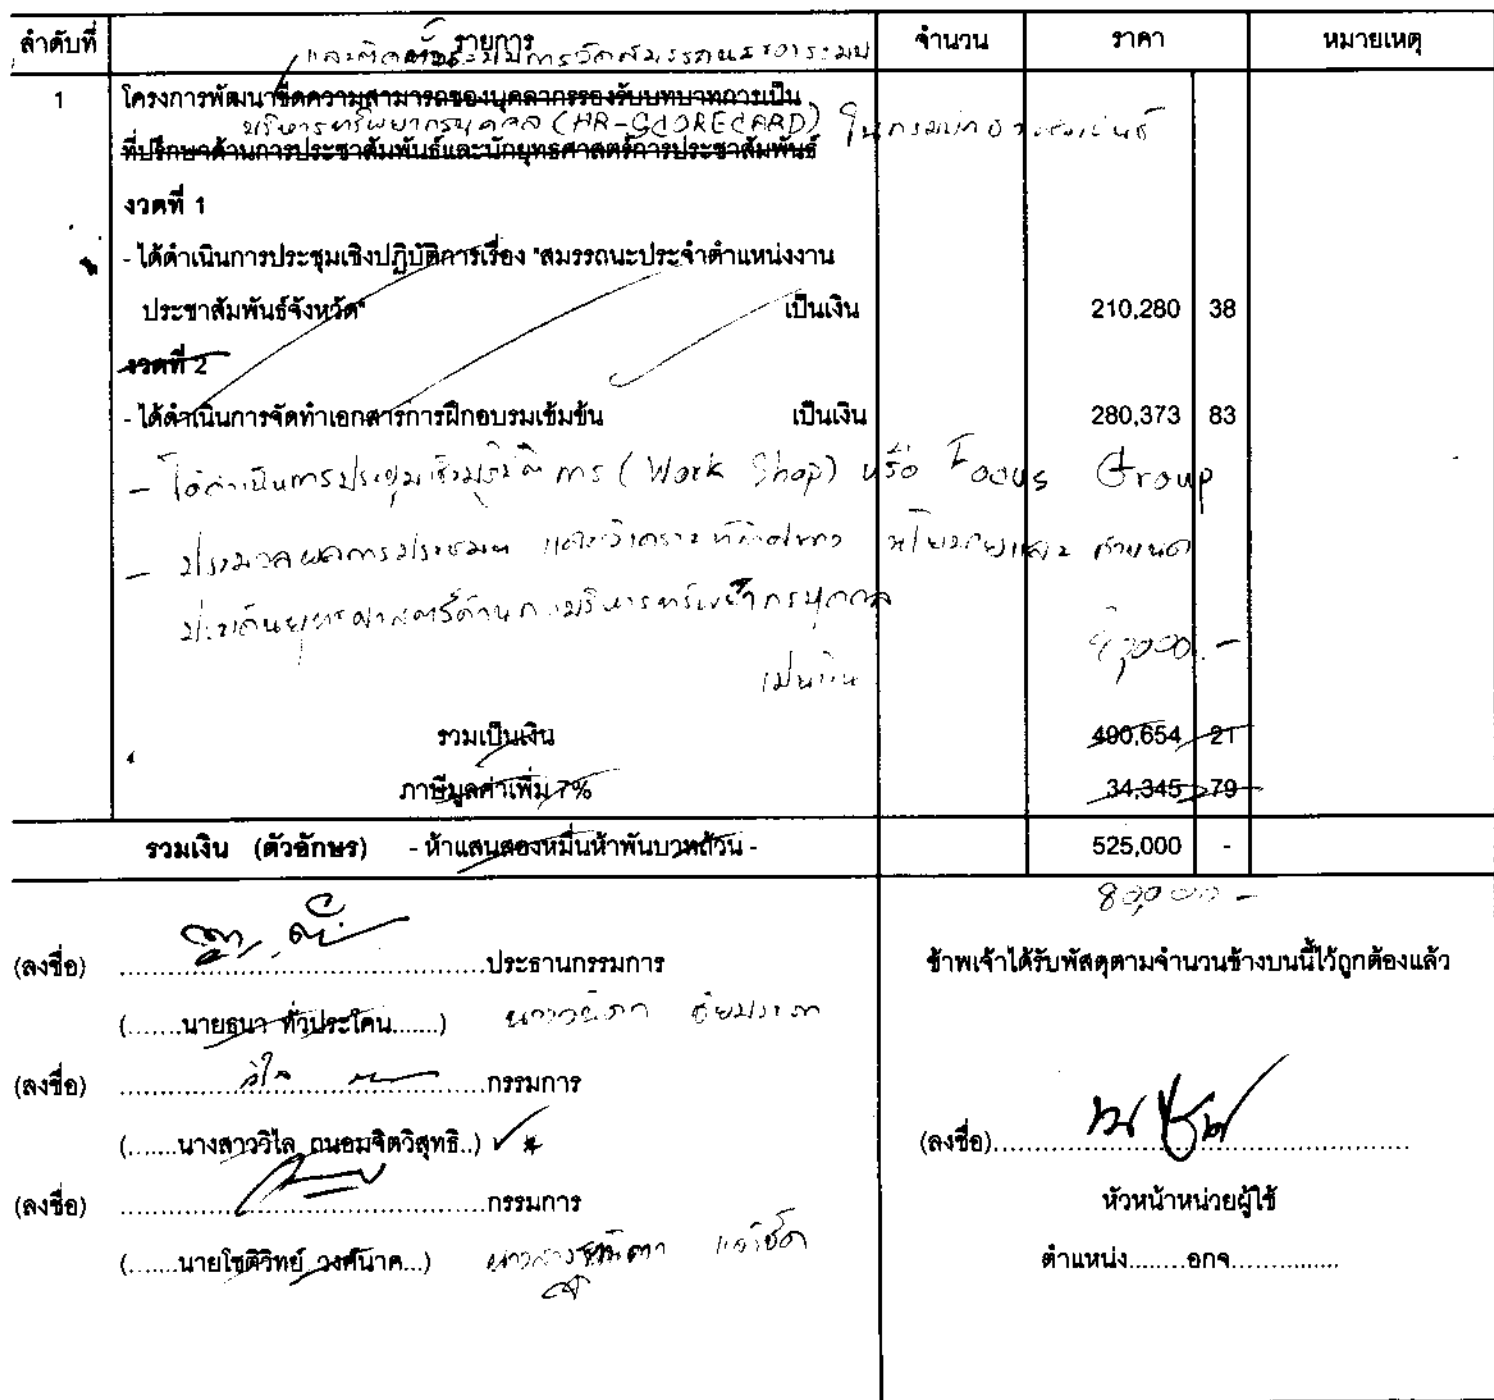 ลำดับที่ รายการ จำนวน ราคา หมายเหตุ
และติดตั้งระบบการวัดสมรรถนะของระบบ
1 โครงการพัฒนาขีดความสามารถของบุคลากรรองรับบทบาทการเป็น
บริหารทรัพยากรบุคคล (HR-SCORECARD) ในกรมประชาสัมพันธ์
ที่ปรึกษาด้านการประชาสัมพันธ์และนักยุทธศาสตร์การประชาสัมพันธ์
งวดที่ 1
- ได้ดำเนินการประชุมเชิงปฏิบัติการเรื่อง "สมรรถนะประจำตำแหน่งงาน
ประชาสัมพันธ์จังหวัด" เป็นเงิน 210,280 38
งวดที่ 2
- ได้ดำเนินการจัดทำเอกสารการฝึกอบรมเข้มข้น เป็นเงิน 280,373 83
- ได้ดำเนินการประชุมเชิงปฏิบัติการ (Work Shop) หรือ Focus Group
- ประมวลผลการประชุมฯ และวิเคราะห์ทิศทาง นโยบายและ กำหนด
ประเด็นยุทธศาสตร์ด้านการบริหารทรัพยากรบุคคล
เป็นเงิน 80,000.-
รวมเป็นเงิน 490,654 21
ภาษีมูลค่าเพิ่ม 7% 34,345 79
รวมเงิน (ตัวอักษร) - ห้าแสนสองหมื่นห้าพันบาทถ้วน - 525,000 -
80,000 -
(ลงชื่อ) ........ประธานกรรมการ
(.......นายธนา ทั่วประโคน.......)
(ลงชื่อ) ........กรรมการ
(.......นางสาววิไล ถนอมจิตวิสุทธิ..)
(ลงชื่อ) ........กรรมการ
(.......นายโชติวิทย์ วงศ์นาค...)
ข้าพเจ้าได้รับพัสดุตามจำนวนข้างบนนี้ไว้ถูกต้องแล้ว
(ลงชื่อ)........
หัวหน้าหน่วยผู้ใช้
ตำแหน่ง........อกจ........